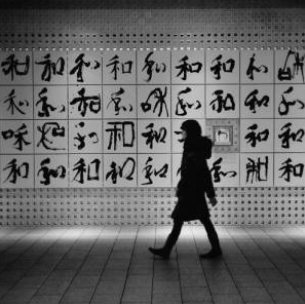 和 和 和 和 和 和 和 和 和
和 和 和 和 和 和 和 和 和
和 和 和 和 和 和 和
和 和 和 和 和 和 和 和